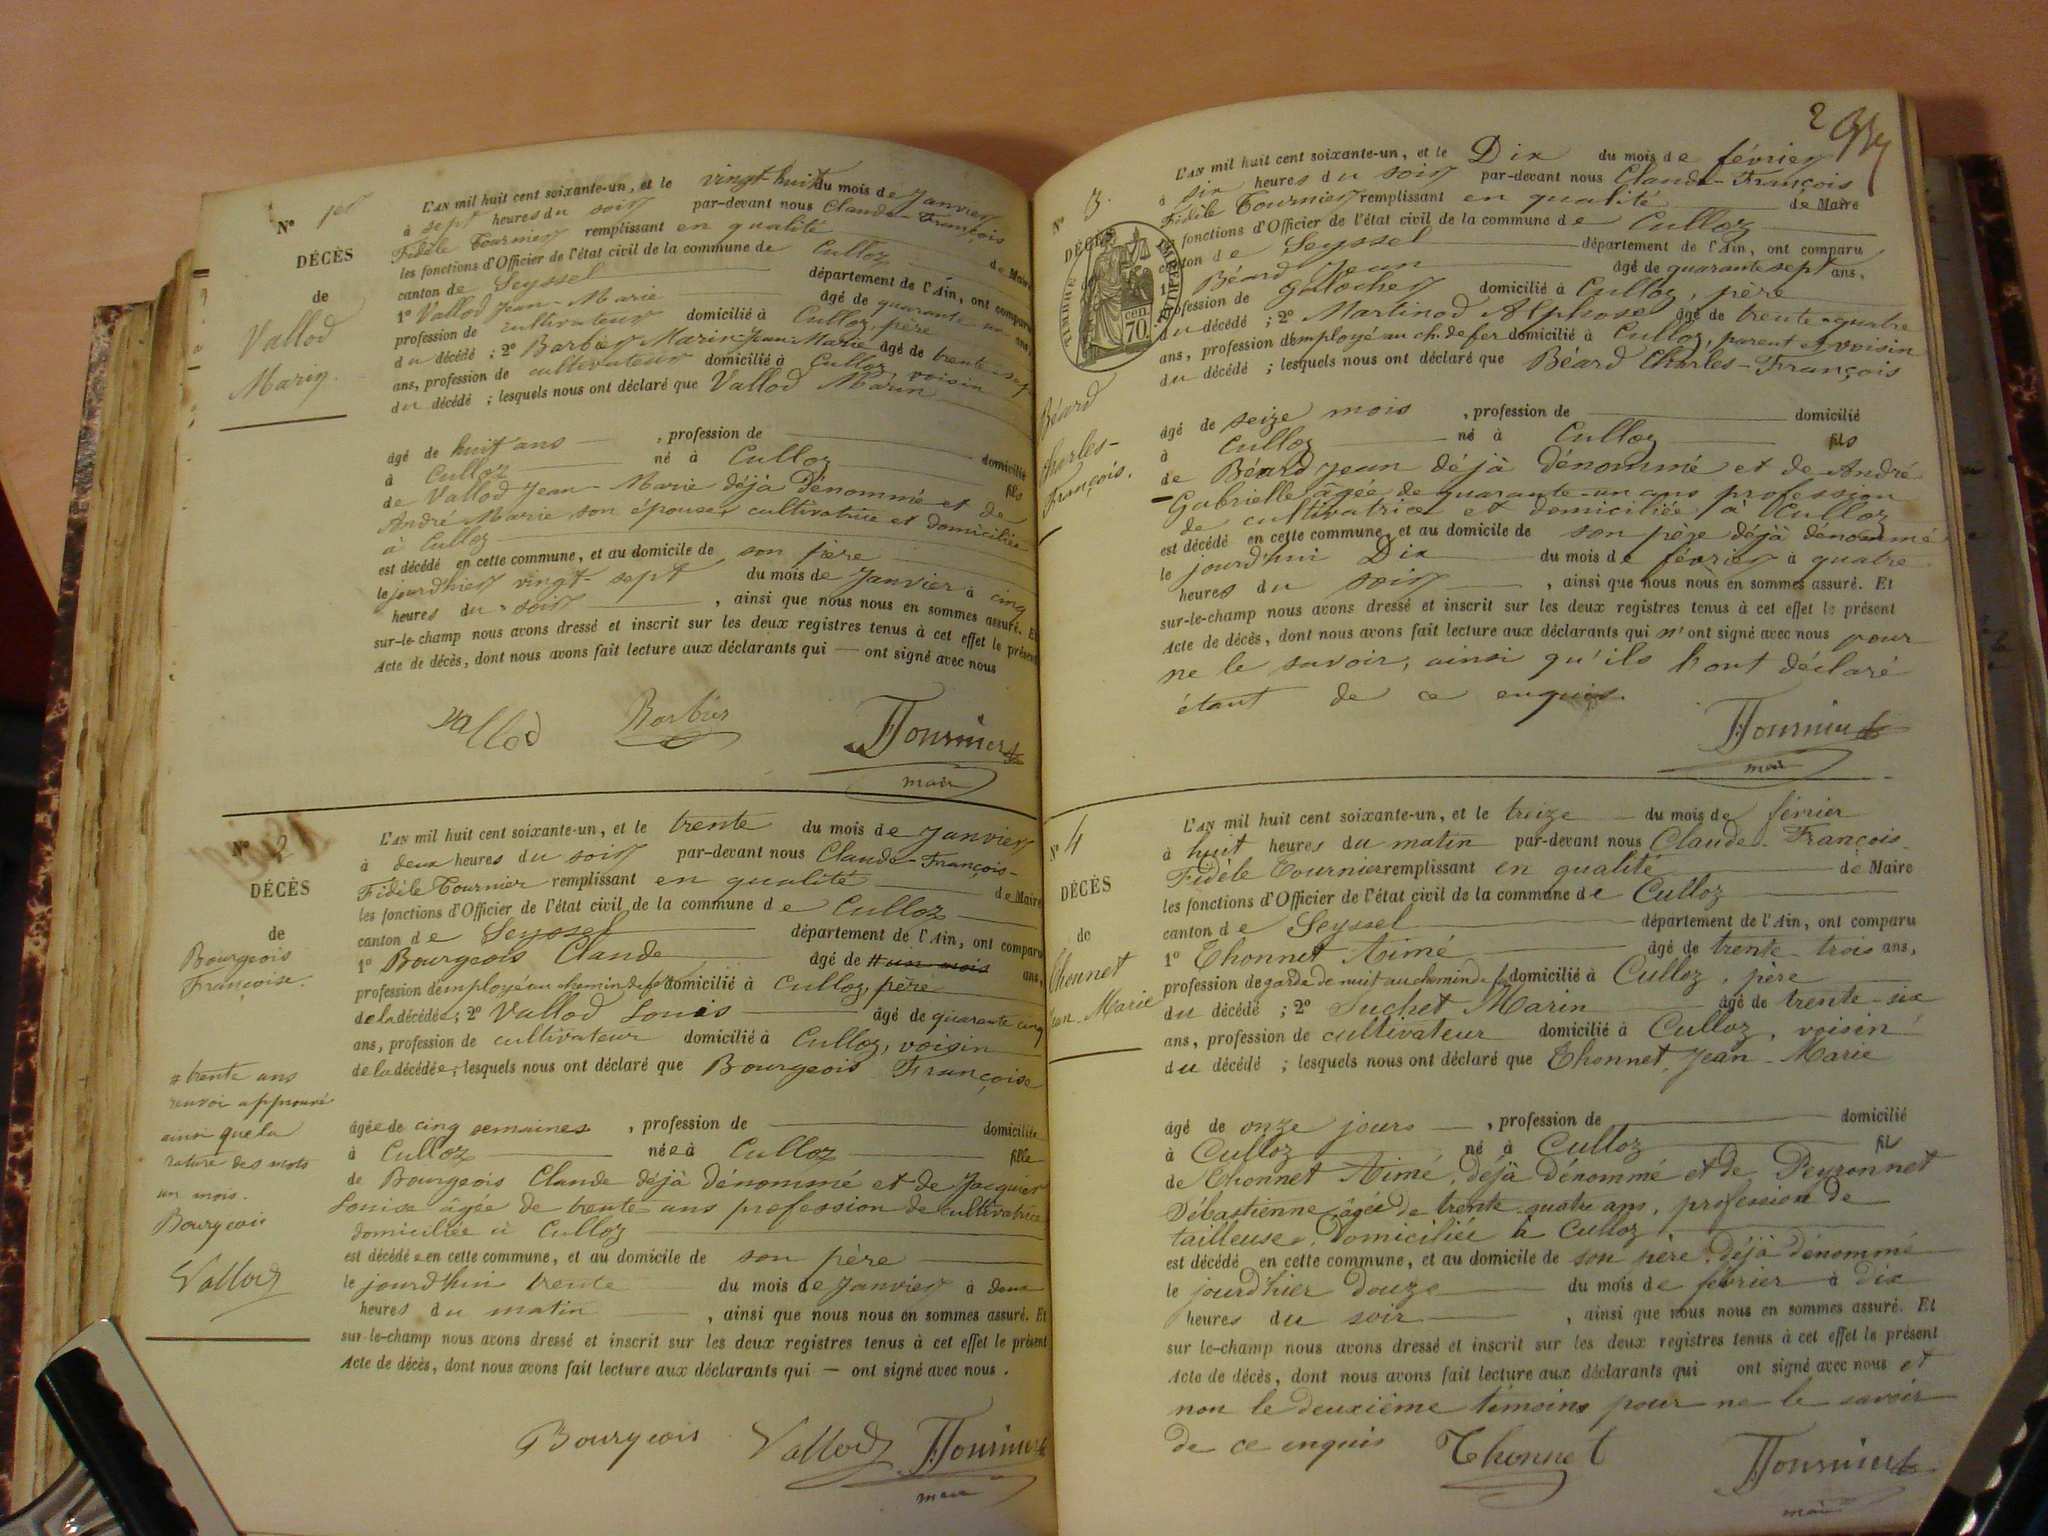 N° 1er
DÉCÈS
de
Vallod
Marin.
L'AN mil huit cent soixante-un, et le vingt-huit du mois de Janvier
à sept heures du soir par-devant nous Claude-François
Fidèle Tournier remplissant en qualité de Maire
les fonctions d'Officier de l'état civil de la commune de Culloz
canton de Seyssel département de l'Ain, ont comparu
1° Vallod Jean-Marie âgé de quarante un ans,
profession de cultivateur domicilié à Culloz, père
du décédé ; 2° Barbier Marin-Jean-Marie âgé de trente-sept
ans, profession de cultivateur domicilié à Culloz, voisin
du décédé ; lesquels nous ont déclaré que Vallod Marin
âgé de huit ans , profession de domicilié
à Culloz né à Culloz fils
de Vallod Jean-Marie déjà dénommé et de
André Marie son épouse, cultivatrice et domiciliée
à Culloz
est décédé en cette commune, et au domicile de son père
le jourd'hier vingt-sept du mois de Janvier à cinq
heures du soir , ainsi que nous nous en sommes assuré. Et
sur-le-champ nous avons dressé et inscrit sur les deux registres tenus à cet effet le présent
Acte de décès, dont nous avons fait lecture aux déclarants qui — ont signé avec nous
Vallod Barbier Tournier
maire
N° 2
DÉCÈS
de
Bourgeois
Françoise.
# trente ans
renvoi approuvé
ainsi que la
rature des mots
un mois.
Bourgeois
Vallod
L'AN mil huit cent soixante-un, et le trente du mois de Janvier
à deux heures du soir par-devant nous Claude-François-
Fidèle Tournier remplissant en qualité de Maire
les fonctions d'Officier de l'état civil de la commune de Culloz
canton de Seyssel département de l'Ain, ont comparu
1° Bourgeois Claude âgé de # un mois ans,
profession d'employé au chemin de fer domicilié à Culloz, père
de la décédée ; 2° Vallod Louis âgé de quarante cinq
ans, profession de cultivateur domicilié à Culloz, voisin
de la décédée ; lesquels nous ont déclaré que Bourgeois Françoise
âgée de cinq semaines , profession de domiciliée
à Culloz née à Culloz fille
de Bourgeois Claude déjà dénommé et de Jacquier
Louise âgée de trente ans profession de cultivatrice
domiciliée à Culloz
est décédée en cette commune, et au domicile de son père
le jourd'hui trente du mois de Janvier à deux
heures du matin , ainsi que nous nous en sommes assuré. Et
sur-le-champ nous avons dressé et inscrit sur les deux registres tenus à cet effet le présent
Acte de décès, dont nous avons fait lecture aux déclarants qui — ont signé avec nous.
Bourgeois Vallod Tournier
maire
2
N° 3.
DÉCÈS
TIMBRE IMPÉRIAL
70 cen.
Béard
Charles-
François.
L'AN mil huit cent soixante-un, et le Dix du mois de février
à six heures du soir par-devant nous Claude-François
Fidèle Tournier remplissant en qualité de Maire
fonctions d'Officier de l'état civil de la commune de Culloz
canton de Seyssel département de l'Ain, ont comparu
1° Béard Jean âgé de quarante sept ans,
profession de galocher domicilié à Culloz, père
du décédé ; 2° Martinod Alphose âgé de trente-quatre
ans, profession d'employé au ch. de fer domicilié à Culloz, parent et voisin
du décédé ; lesquels nous ont déclaré que Béard Charles-François
âgé de seize mois , profession de domicilié
à Culloz né à Culloz fils
de Béard Jean déjà dénommé et de André
Gabrielle âgée de quarante-un ans profession
de cultivatrice et domiciliée à Culloz
est décédé en cette commune, et au domicile de son père déjà dénommé
le jourd'hui Dix du mois de février à quatre
heures du soir , ainsi que nous nous en sommes assuré. Et
sur-le-champ nous avons dressé et inscrit sur les deux registres tenus à cet effet le présent
Acte de décès, dont nous avons fait lecture aux déclarants qui n'ont signé avec nous pour
ne le savoir, ainsi qu'ils l'ont déclaré
étant de ce enquis.
Tournier
maire
N° 4
DÉCÈS
de
Thonnet
Jean-Marie
L'AN mil huit cent soixante-un, et le treize du mois de février
à huit heures du matin par-devant nous Claude-François-
Fidèle Tournier remplissant en qualité de Maire
les fonctions d'Officier de l'état civil de la commune de Culloz
canton de Seyssel département de l'Ain, ont comparu
1° Thonnet Aimé âgé de trente-trois ans,
profession de garde de nuit au chemin de fer domicilié à Culloz, père
du décédé ; 2° Suchet Marin âgé de trente-six
ans, profession de cultivateur domicilié à Culloz, voisin
du décédé ; lesquels nous ont déclaré que Thonnet Jean-Marie
âgé de onze jours , profession de domicilié
à Culloz né à Culloz fils
de Thonnet Aimé, déjà dénommé et de Peyronnet
Sébastienne âgée de trente-quatre ans, profession de
tailleuse, domiciliée à Culloz
est décédé en cette commune, et au domicile de son père, déjà dénommé
le jourd'hier douze du mois de février à dix
heures du soir , ainsi que nous nous en sommes assuré. Et
sur le-champ nous avons dressé et inscrit sur les deux registres tenus à cet effet le présent
Acte de décès, dont nous avons fait lecture aux déclarants qui ont signé avec nous et
non le deuxième témoins pour ne le savoir
de ce enquis Thonnet Tournier
maire